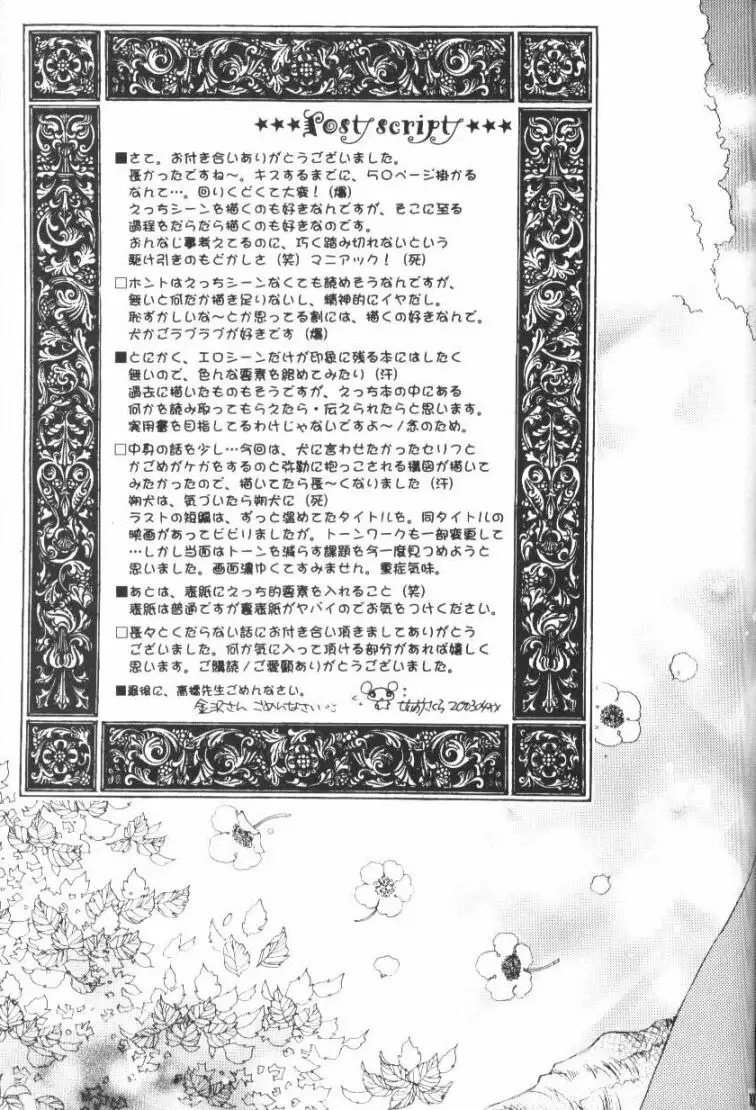 ★★★Post script★★★
■さて。お付き合いありがとうございました。
長かったですね~。キスするまでに、50ページ掛かる
なんて…。回りくどくて大変!(爆)
えっちシーンを描くのも好きなんですが、そこに至る
過程をだらだら描くのも好きなのです。
おんなじ事考えてるのに、巧く踏み切れないという
駆け引きのもどかしさ(笑)マニアック!(死)
□ホントはえっちシーンなくても読めそうなんですが、
無いと何だか描き足りないし、精神的にイヤだし。
恥ずかしいな~とか思ってる割には、描くの好きなんで。
犬かごラブラブが好きです(爆)
■とにかく、エロシーンだけが印象に残る本にはしたく
無いので、色んな要素を絡めてみたい(汗)
過去に描いたものもそうですが、えっち本の中にある
何かを読み取ってもらえたら・伝えられたらと思います。
実用書を目指してるわけじゃないですよ~/念のため。
□中身の話を少し…今回は、犬に言わせたかったセリフと
かごめがケガをするのと弥勒に抱っこされる構図が描いて
みたかったので、描いてたら長~くなりました(汗)
朔犬は、気づいたら朔犬に(死)
ラストの短編は、ずっと温めてたタイトルを。同タイトルの
映画があってビビりましたが。トーンワークも一部変更して
…しかし当面はトーンを減らす課題を今一度見つめようと
思いました。画面濃ゆくてすみません。重症気味。
■あとは、表紙にえっち的要素を入れること(笑)
表紙は普通ですが裏表紙がヤバイのでお気をつけください。
□長々とくだらない話にお付き合い頂きましてありがとう
ございました。何か気に入って頂ける部分があれば嬉しく
思います。ご購読/ご愛顧ありがとうございました。
■最後に、高橋先生ごめんなさい。
金沢さんごめんなさい